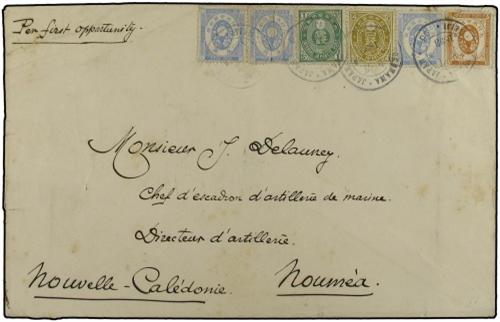 Per first opportunity.
Monsieur J. Delauney.
Chef d'escadron d'artillerie de marine.
Directeur d'artillerie.
Nouvelle-Calédonie. Nouméa.
JAPAN